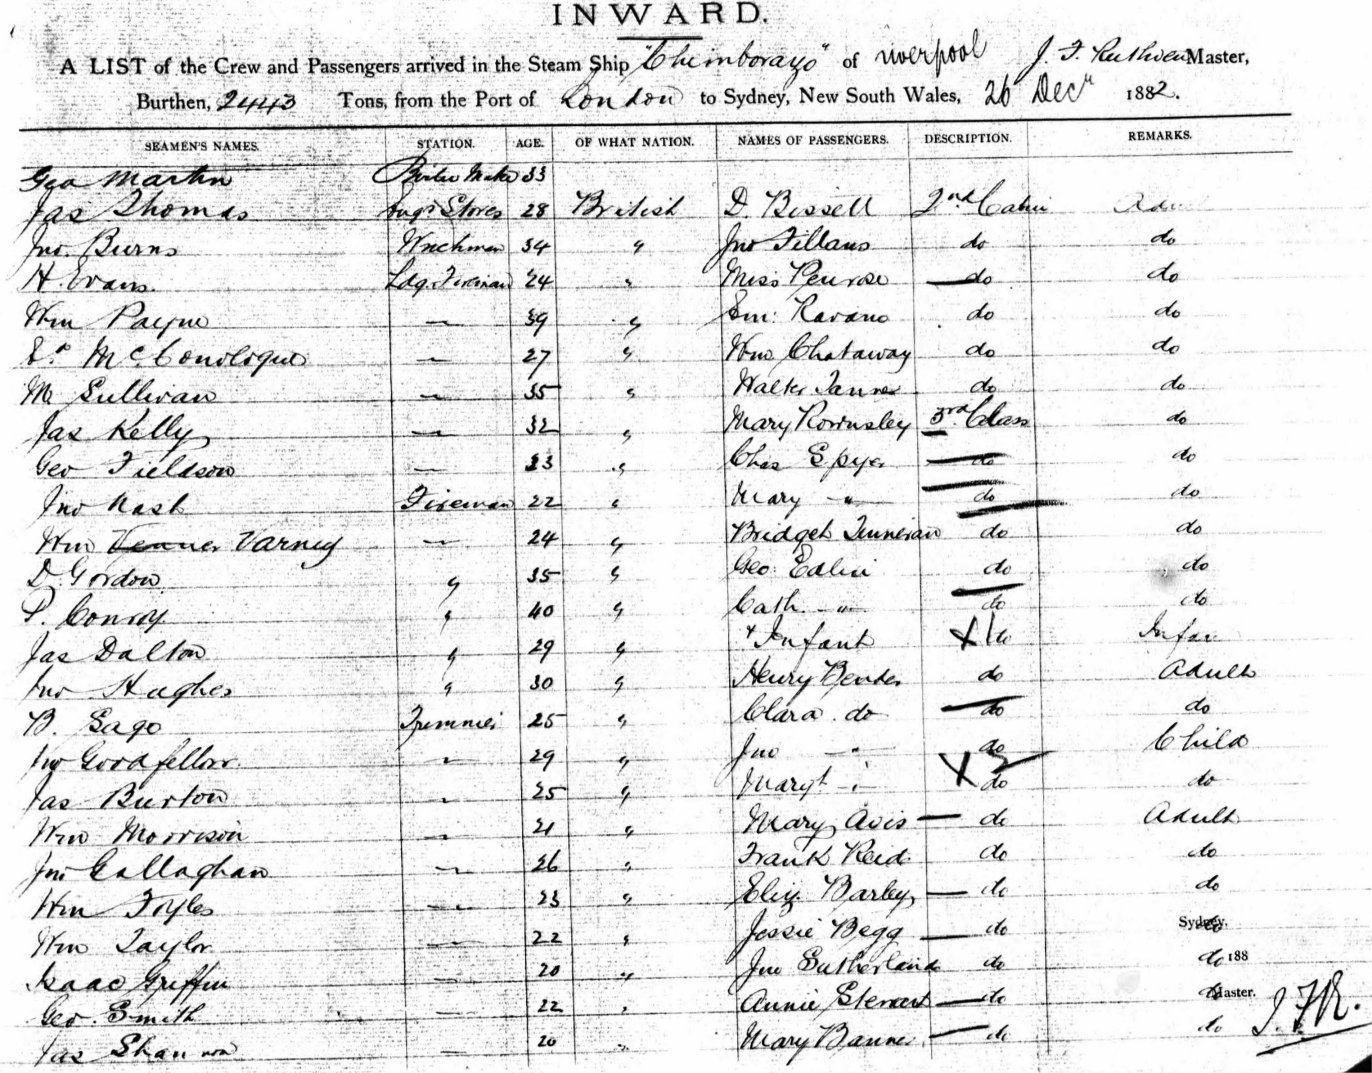 INWARD.
A LIST of the Crew and Passengers arrived in the Steam Ship "Chimborazo" of Liverpool J. F. Ruthven Master,
Burthen, 2443 Tons, from the Port of London to Sydney, New South Wales, 26 Decr 1882.
SEAMEN'S NAMES. STATION. AGE. OF WHAT NATION. NAMES OF PASSENGERS. DESCRIPTION. REMARKS.
Geo Martin Boiler Maker 33
Jas Thomas Stores 28 British D. Bissell 2nd Cabin Adult
Jno. Burns Winchman 34 " Jno Fillans do do
H. Evans Ldg. Fireman 24 " Miss Penrose do do
Wm Payne — 39 " Ravano do do
Mc. Conologue — 27 " Wm Chataway do do
M Sullivan — 35 " Walter Tanner do do
Jas Kelly — 32 " Mary Rownsley 3rd Class do
Geo Fieldson — 23 " Chas Spyer do do
Jno Nash Fireman 22 " Mary " do do
Wm Varney — 24 " Bridget do do
D. Gordon " 35 " Geo. Edlin do do
P. Conroy " 40 " Cath. " do do
Jas Dalton " 29 " + Infant X 1 do Infant
Jno Hughes " 30 " Henry Bender do Adult
B. Sago Trimmer 25 " Clara do do do
Jno Goodfellow — 29 " Jno — " do Child
Jas Burton — 25 " Margt — " X 2 do do
Wm Morrison — 21 " Mary Avis — do Adult
Jno Gallaghan — 26 " Frank Reid do do
Wm Foyles — 23 " Eliz. Barley — do do
Wm Taylor — 22 " Jessie Begg — do do
Sydney,
Isaac Griffin — 20 " Jno Sutherland do do
188
Geo. Smith — 22 " Annie Stewart — do do
Master.
J. F. R.
Jas Shannon — 20 " Mary Banner — do do